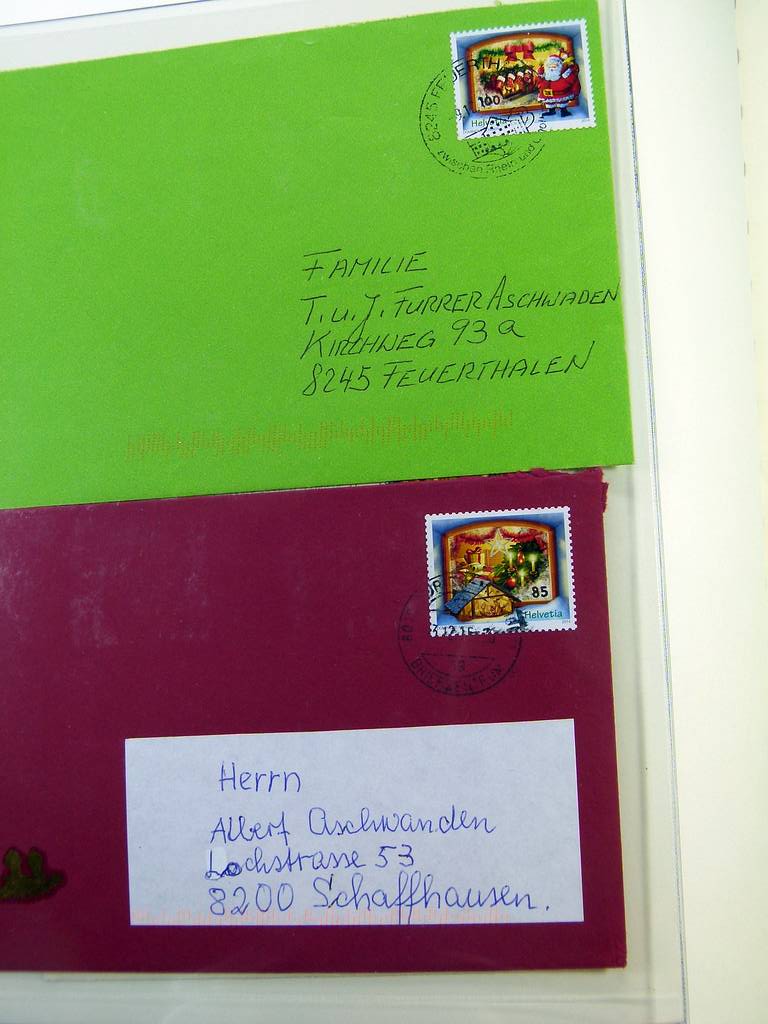 8245 FEUERTH
100
Helvetia
zwischen Rhein und
FAMILIE
T. u. J. FURRER ASCHWADEN
KIRCHWEG 93 a
8245 FEUERTHALEN
85
Helvetia
BRIEFZENTRUM
Herrn
Albert Aschwanden
Lochstrasse 53
8200 Schaffhausen.